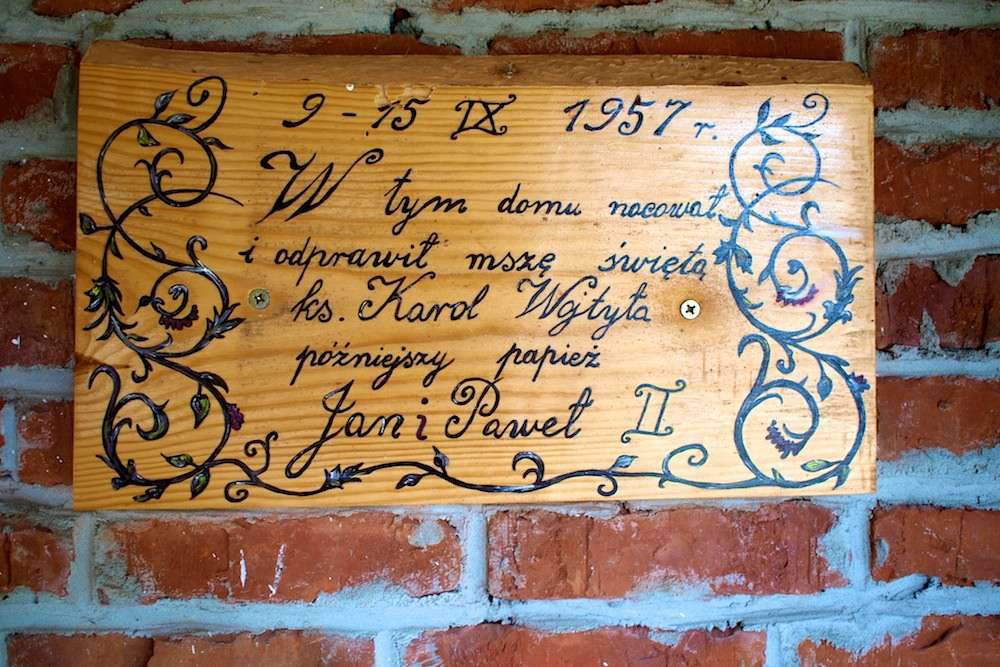 9 - 15 IX 1957 r.
W tym domu nocował
i odprawił mszę świętą
ks. Karol Wojtyła
późniejszy papież
Jan i Paweł II